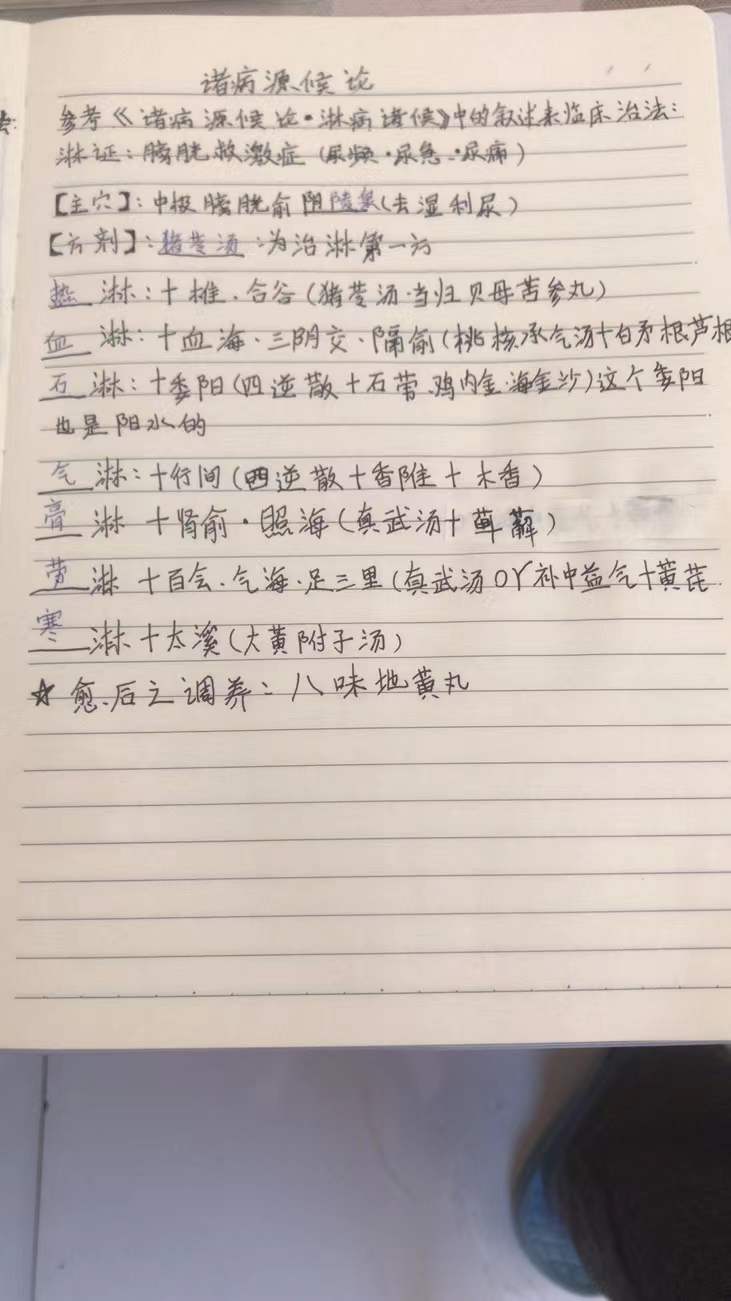 诸病源候论
参考《诸病源候论·淋病诸候》中的叙述来临床治法:
淋证:膀胱救激症(尿频·尿急·尿痛)
【主穴】:中极膀胱俞阴陵泉(去湿利尿)
【方剂】:猪苓汤:为治淋第一方
热淋:十椎.合谷(猪苓汤·当归贝母苦参丸)
血淋:十血海·三阴交·隔俞(桃核承气汤十白矛根芦根
石淋:十委阳(四逆散十石苇.鸡内金·海金沙)这个委阳
也是阳水的
气淋:十行间(四逆散十香附十木香)
膏淋十肾俞·照海(真武汤十萆薢)
劳淋十百会.气海·足三里(真武汤or补中益气十黄芪
寒淋十太溪(大黄附子汤)
☆愈后之调养:八味地黄丸